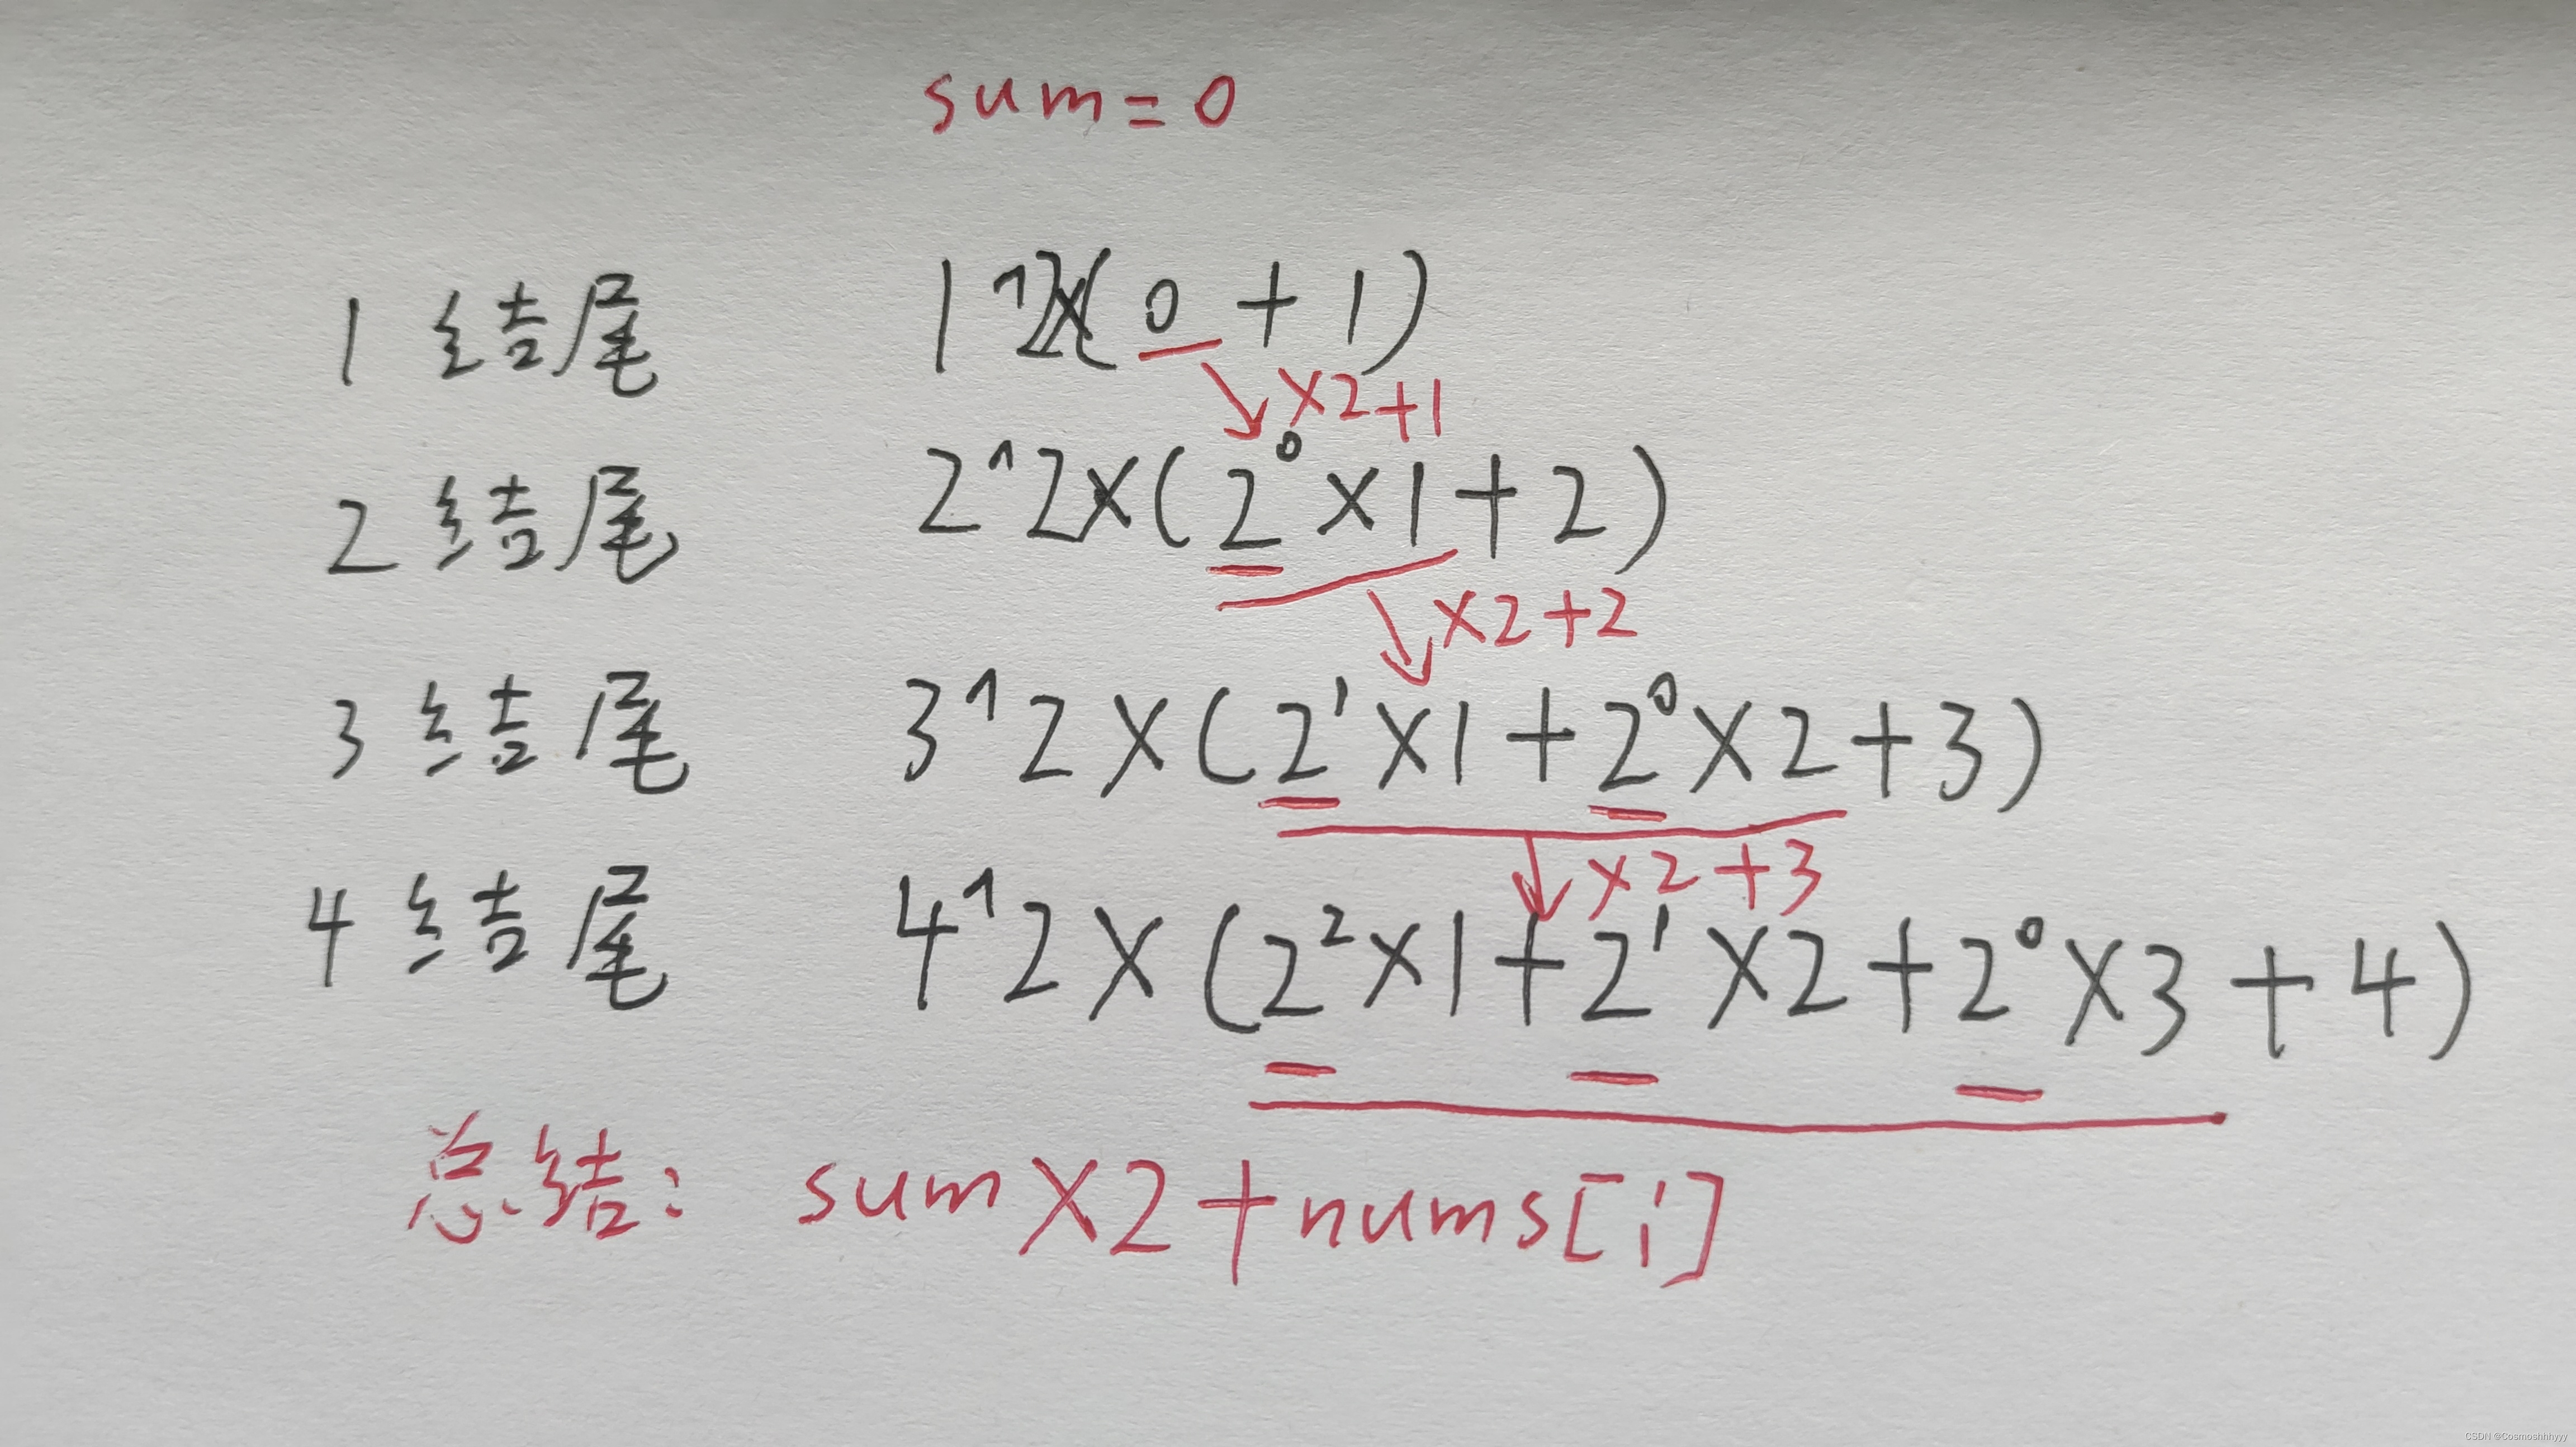 sum=0
1结尾 1^2×(0+1)
×2+1
2结尾 2^2×(2⁰×1+2)
×2+2
3结尾 3^2×(2¹×1+2⁰×2+3)
×2+3
4结尾 4^2×(2²×1+2¹×2+2⁰×3+4)
总结: sum×2+nums[i]
CSDN @Cosmoshhhyyy